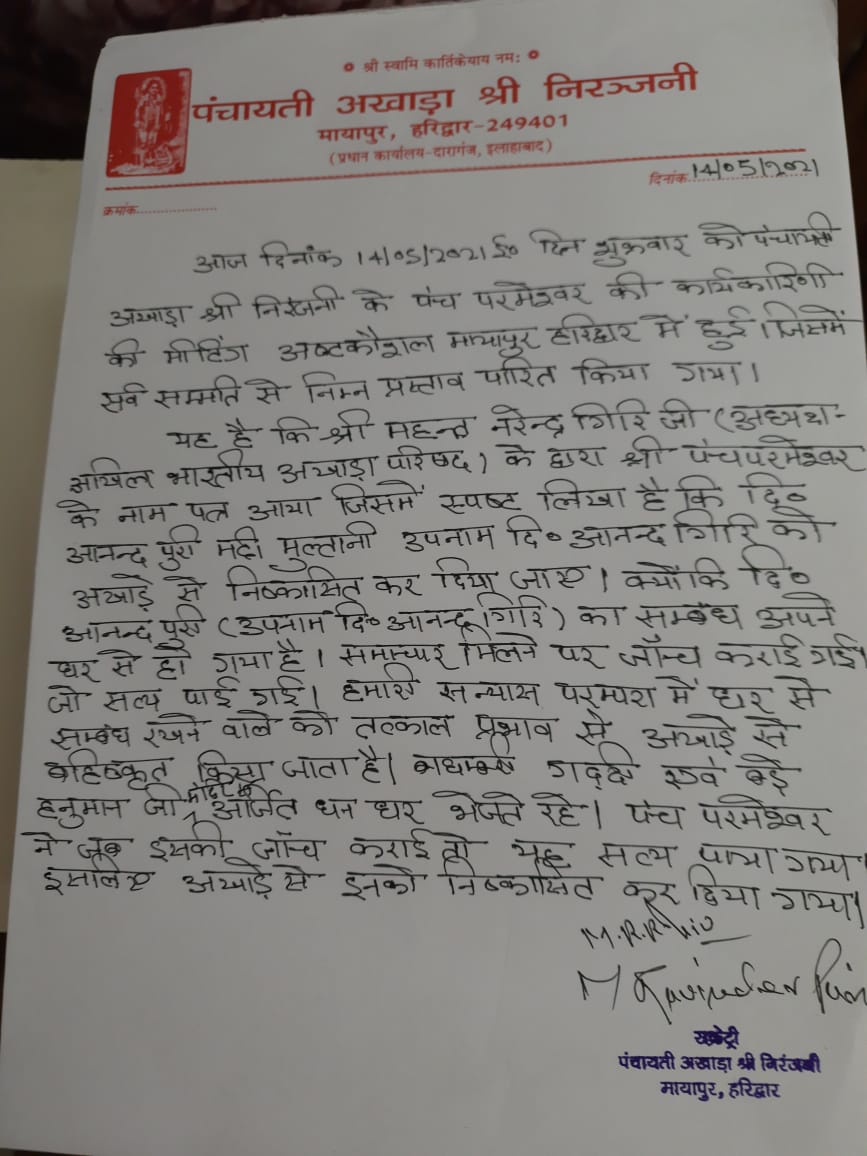 श्री स्वामि कार्तिकेयाय नमः
पंचायती अखाड़ा श्री निरञ्जनी
मायापुर, हरिद्वार-249401
(प्रधान कार्यालय-दारागंज, इलाहाबाद)
दिनांक 14/05/2021
क्रमांक
आज दिनांक 14/05/2021 ई० दिन शुक्रवार को पंचायती
अखाड़ा श्री निरंजनी के पंच परमेश्वर की कार्यकारिणी
की मीटिंग अष्टकौशल मायापुर हरिद्वार में हुई। जिसमें
सर्व सम्मति से निम्न प्रस्ताव पारित किया गया।
यह है कि श्री महन्त नरेन्द्र गिरि जी (अध्यक्ष-
अखिल भारतीय अखाड़ा परिषद) के द्वारा श्री पंचपरमेश्वर
के नाम पत्र आया जिसमें स्पष्ट लिखा है कि दि०
आनन्द पुरी मढ़ी मुल्तानी उपनाम दि० आनन्द गिरि को
अखाड़े से निष्कासित कर दिया जाए। क्योंकि दि०
आनन्द पुरी (उपनाम दि० आनन्द गिरि) का सम्बंध अपने
घर से हो गया है। समाचार मिलने पर जाँच कराई गई।
जो सत्य पाई गई। हमारी सन्यास परम्परा में घर से
सम्बंध रखने वाले को तत्काल प्रभाव से अखाड़े से
बहिष्कृत किया जाता है। गद्दी एवं बड़े
हनुमान जी मंदिर से अर्जित धन घर भेजते रहे। पंच परमेश्वर
ने जब इसकी जाँच कराई तो यह सत्य पाया गया।
इसलिए अखाड़े से इनको निष्कासित कर दिया गया।
M Ravinder Puri
सक्रेट्री
पंचायती अखाड़ा श्री निरंजनी
मायापुर, हरिद्वार